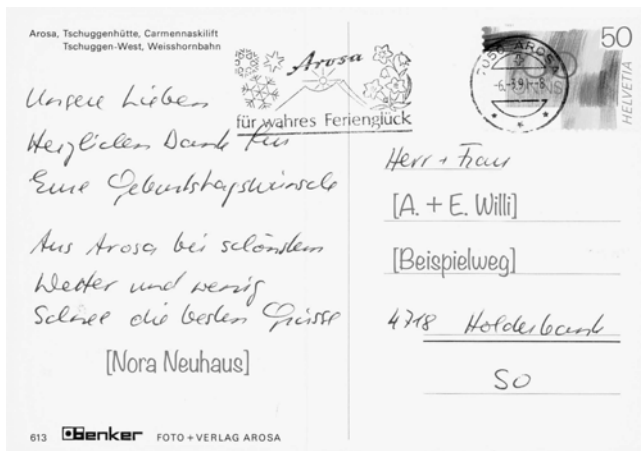 Arosa, Tschuggenhütte, Carmennaskilift
Tschuggen-West, Weisshornbahn
Arosa
für wahres Ferienglück
7050 AROSA
50
HELVETIA
Unsere Lieben
Herzlichen Dank für
Eure Geburtstagswünsche
Aus Arosa bei schönstem
Wetter und wenig
Schnee die besten Grüsse
[Nora Neuhaus]
Herr + Frau
[A. + E. Willi]
[Beispielweg]
4718 Holderbank
SO
613 Benker FOTO + VERLAG AROSA